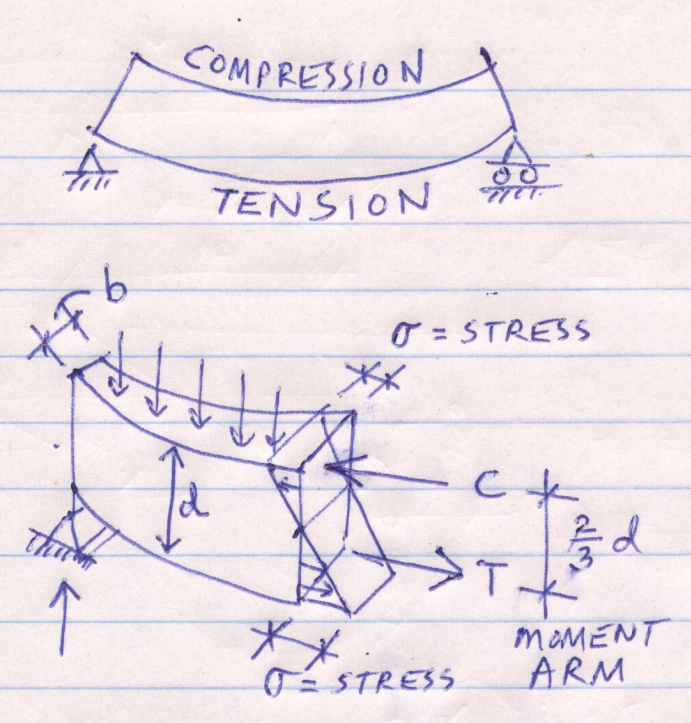 COMPRESSION
TENSION
b
σ = STRESS
d
C
2/3 d
T
MOMENT
ARM
σ = STRESS